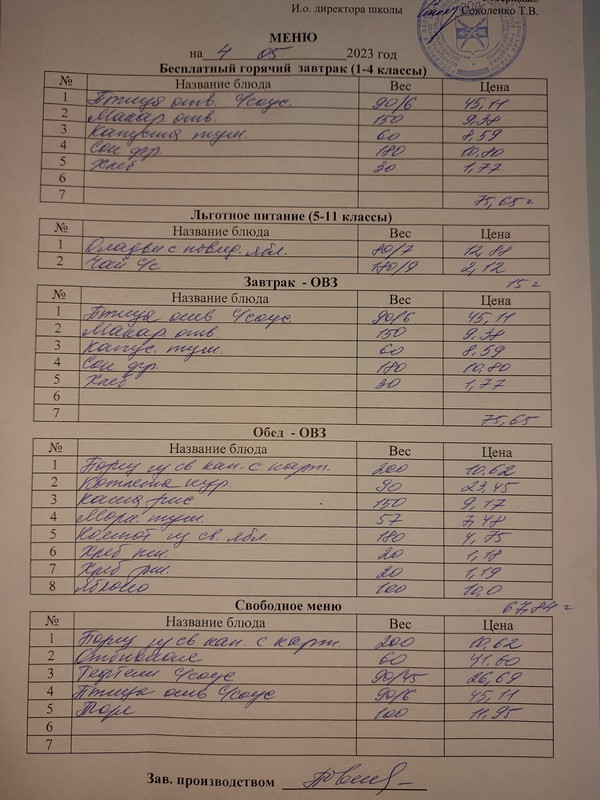 И.о. директора школы Соколенко Т.В.
МЕНЮ
на 4 05 2023 год
Бесплатный горячий завтрак (1-4 классы)
№ Название блюда Вес Цена
1 Птица отв. с/соус. 90/6 45,11
2 Макар отв. 150 9,38
3 Капуста туш. 60 8,59
4 Сок фр 180 10,80
5 Хлеб 30 1,77
6
7 75,65
Льготное питание (5-11 классы)
№ Название блюда Вес Цена
1 Оладьи с повид. ябл. 80/7 12,88
2 Чай с/с 180/9 2,12
Завтрак - ОВЗ 15
№ Название блюда Вес Цена
1 Птица отв с/соус 90/6 45,11
2 Макар. отв. 150 9,38
3 Капус. туш. 60 8,59
4 Сок фр 180 10,80
5 Хлеб 30 1,77
6
7 75,65
Обед - ОВЗ
№ Название блюда Вес Цена
1 Борщ из св кап. с карт. 200 10,62
2 Котлета кур 90 23,45
3 Каша рис 150 9,17
4 Морк. туш. 57 7,48
5 Компот из св. ябл. 180 4,75
6 Хлеб пш. 20 1,18
7 Хлеб рж. 20 1,19
8 Яблоко 100 10,0
Свободное меню 67,84
№ Название блюда Вес Цена
1 Борщ из св кап. с карт. 200 10,62
2 Отбивная 60 41,60
3 Тефтели с/соус 90/45 26,69
4 Птица отв с/соус 90/6 45,11
5 100 11,95
6
7
Зав. производством